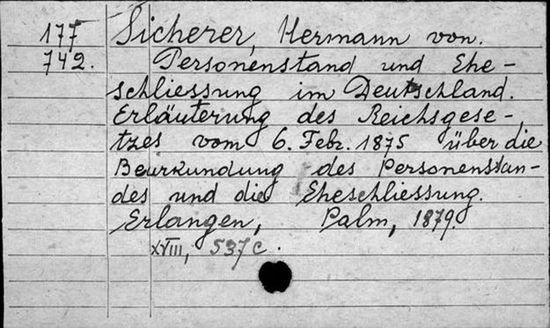 177 Sicherer, Hermann von.
742. Personenstand und Ehe-
schliessung im Deutschland.
Erläuterung des Reichsgese-
tzes vom 6. Febr. 1875 über die
Beurkundung des Personenstan-
des und die Eheschliessung.
Erlangen, Palm, 1879.
XVIII, 537 c.